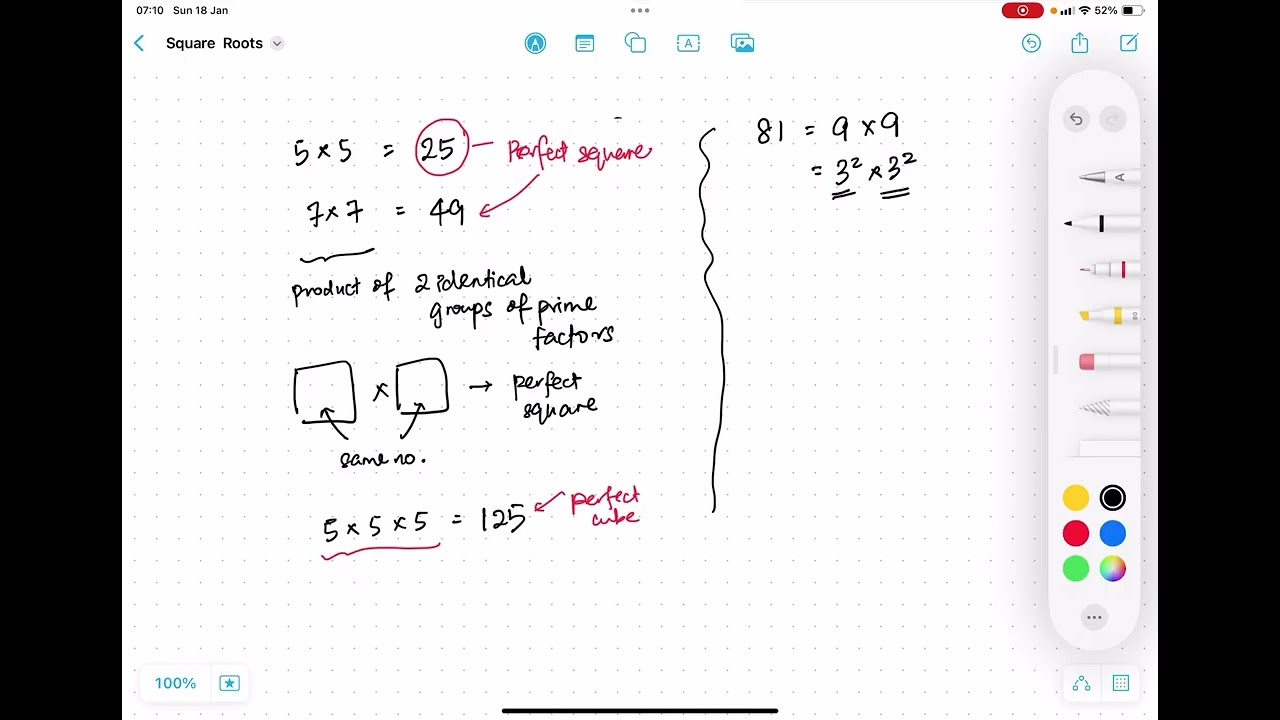 07:10 Sun 18 Jan
52%
Square Roots
A
5 × 5 = 25 - Perfect square
7 × 7 = 49
product of 2 identical
groups of prime
factors
× → perfect
square
same no.
5 × 5 × 5 = 125 perfect
cube
81 = 9 × 9
= 3² × 3²
A
80
100%